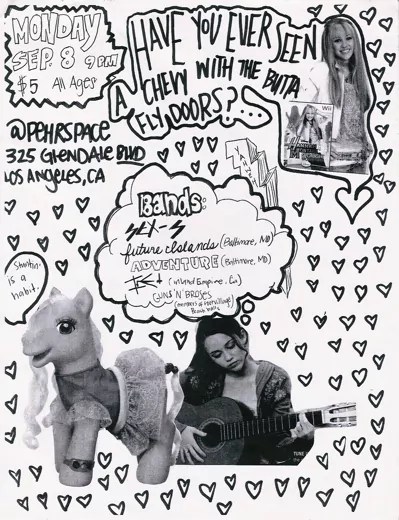 MONDAY
SEP. 8 9 PM
$5 All Ages
HAVE YOU EVER SEEN
A CHEW WITH THE BUTTA
FLY DOORS?...
@PEHRSPACE
325 GLENDALE BLVD
LOS ANGELES, CA
Wii
Bands:
SEX-S
future islands (Baltimore, MD)
ADVENTURE (Baltimore, MD)
(Inland Empire, Ca)
GUNS 'N' BROSES
(members of
Shootin'
is a
habit.
TUNE